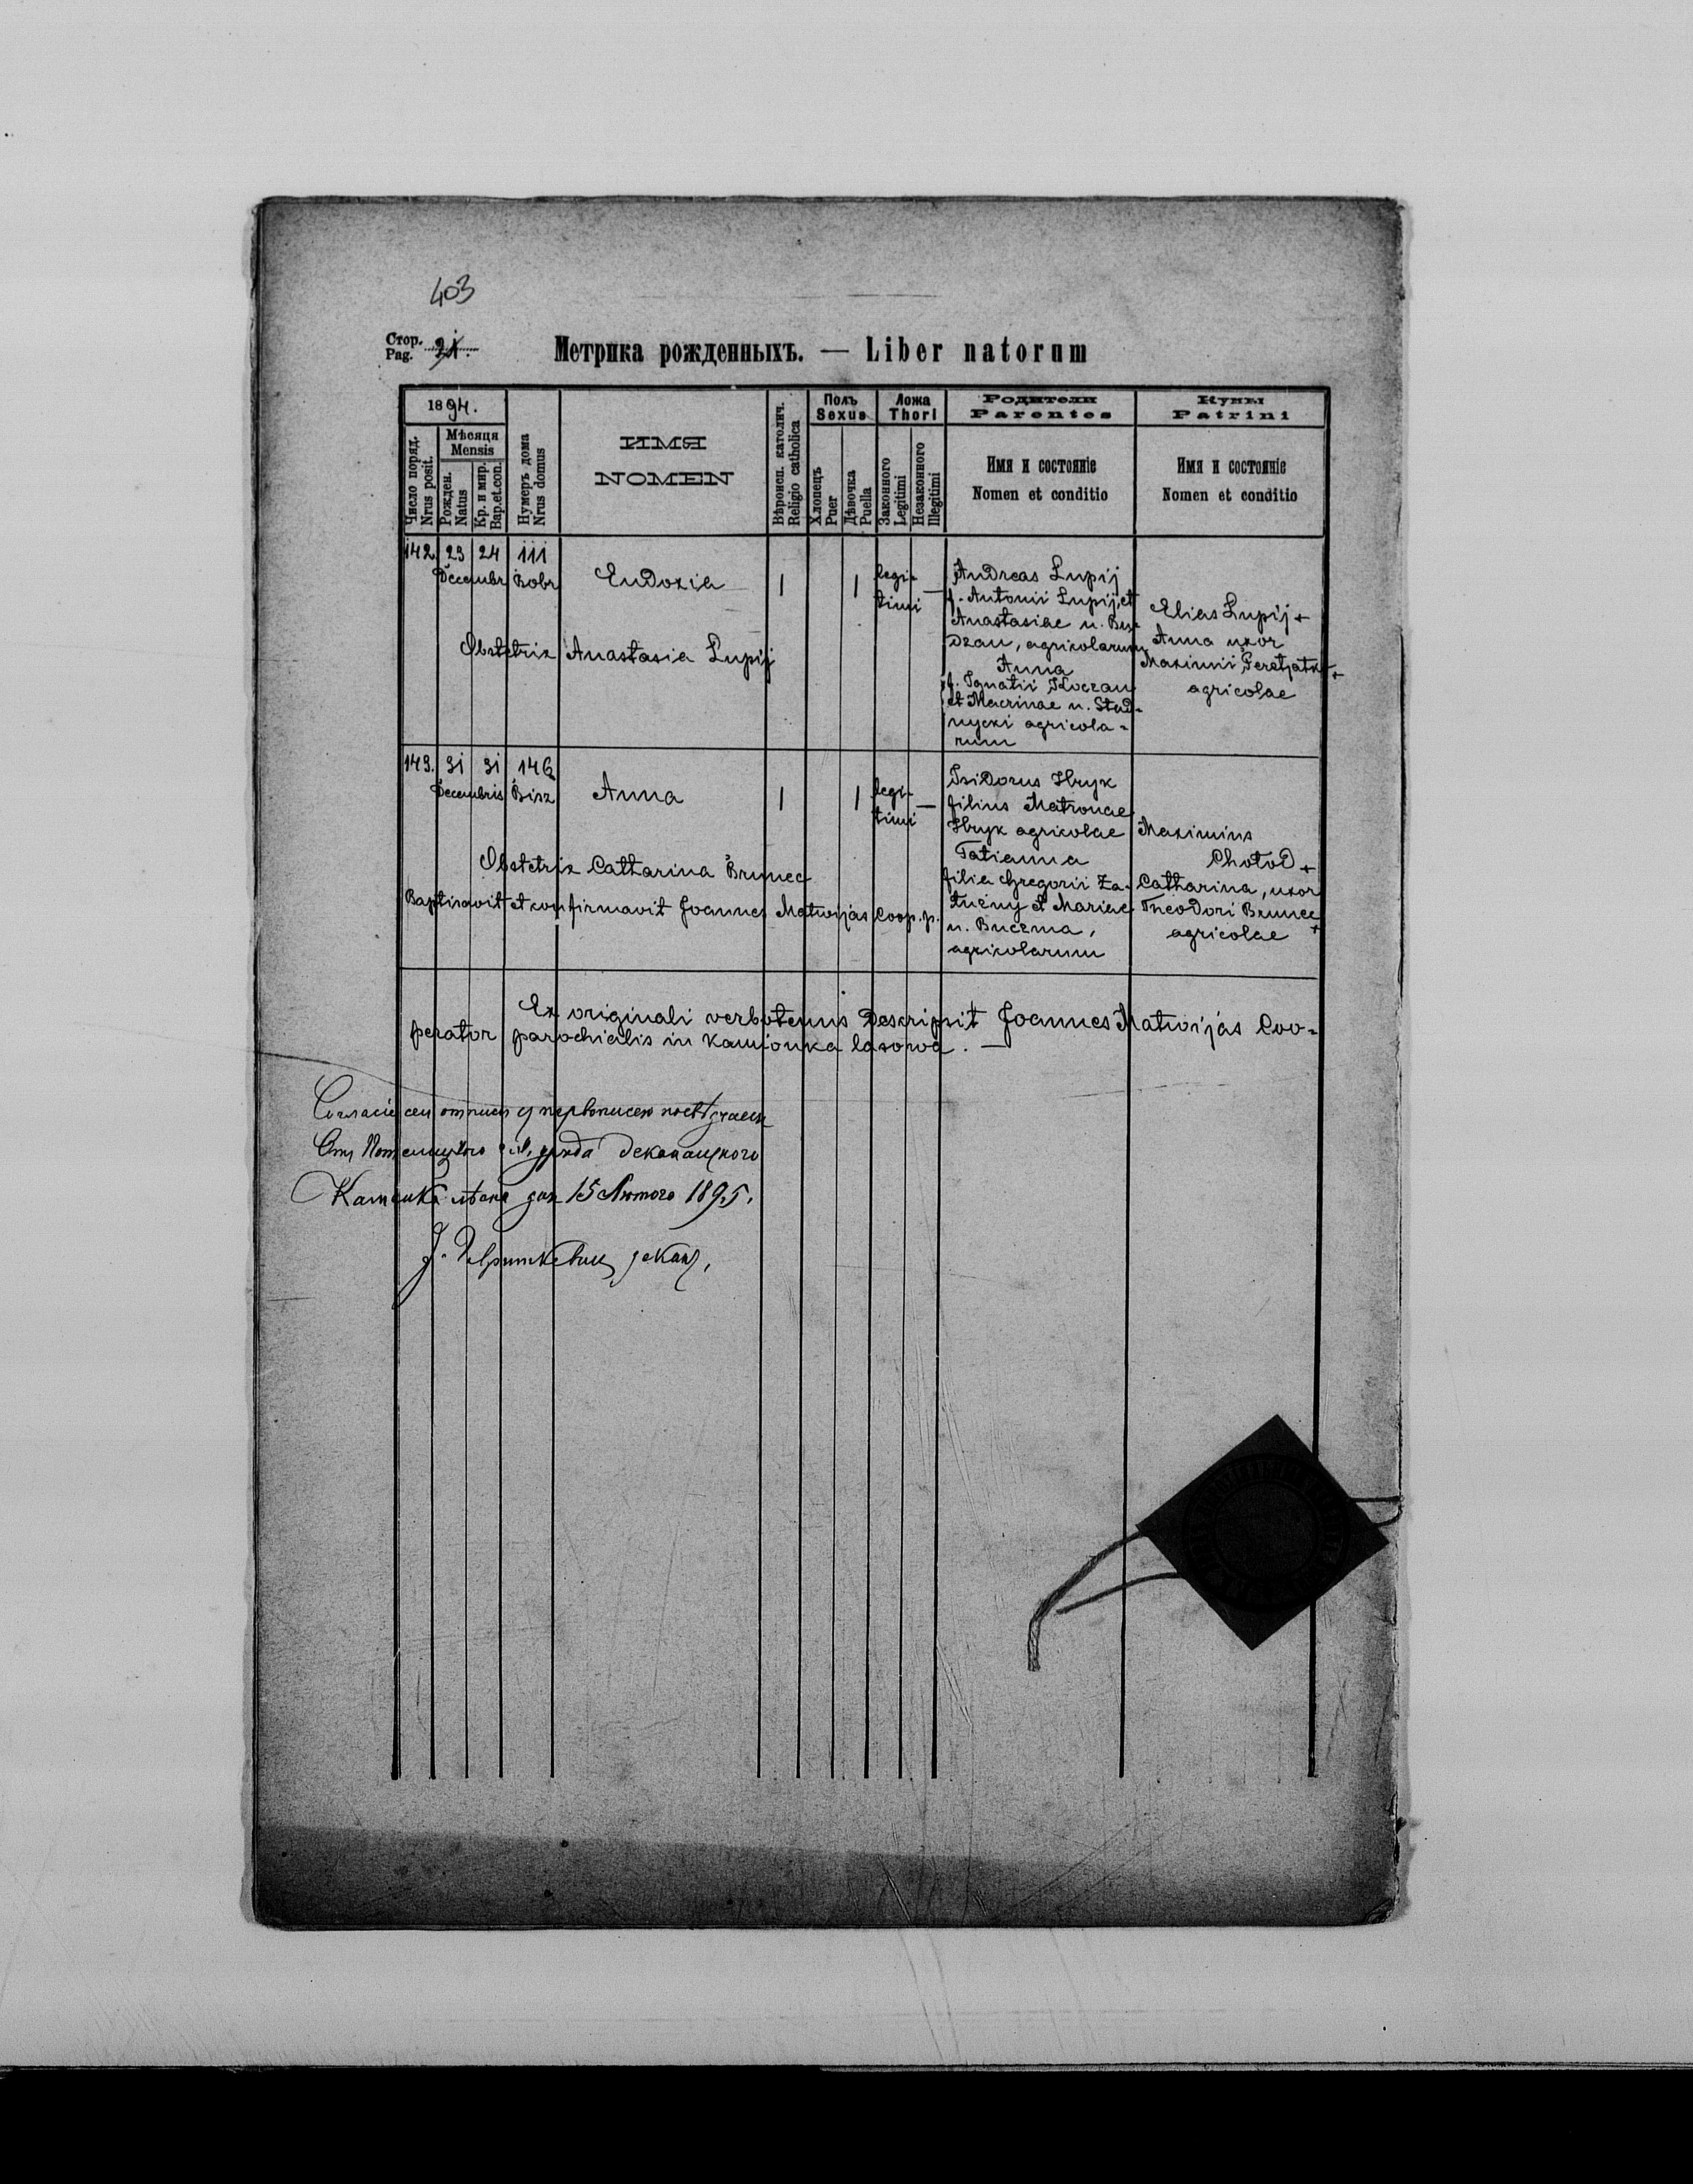 403
Стор.
Pag. 21.
Метрика рожденныхъ. — Liber natorum
1894.
Число поряд.
Nrus posit.
Мѣсяця
Mensis
Рожден.
Natus
Кр. и мир.
Bap.et.con.
Нумеръ дома
Nrus domus
ИМЯ
NOMEN
Вѣроисп. католич.
Religio catholica
Полъ
Sexus
Хлопецъ
Puer
Дѣвочка
Puella
Ложа
Thori
Законного
Legitimi
Незаконного
Illegitimi
Родители
Parentes
Имя и состояніе
Nomen et conditio
Кумы
Patrini
Имя и состояніе
Nomen et conditio
142. 23 24 111
Decembr Bobr
Eudoxia
1
1
legi-
timi
—
Obstetrix Anastasia Lupij
Andreas Lupij
f. Antonii Lupij, et
Anastasiae n. Bu-
dzan, agricolarum
Anna
f. Ignatii Koczan
et Macrinae n. Stad-
nycki agricola-
rum
Elias Lupij +
Anna uxor
Maximii Peretjatk +
agricolae
143. 31 31 146
Decembris Bisz
Anna
1
1
legi-
timi
—
Obstetrix Catharina Brunec
Baptisavit et confirmavit Joannes Matwijas Coop. p.
Isidorus Hryk
filius Matronae
Hryk agricolae
Tatianna
filia Gregorii Za-
tuczny et Mariae
n. Buczma,
agricolarum
Maximius
Chotod +
Catharina, uxor
Theodori Brunec
agricolae +
Ex originali verbotenus descripsit Joannes Matwijas Coo-
perator parochialis in Kamionka lasowa. —
Согласіе сеи отписи съ первописею посвѣдчаем
Отъ гр. уряда деканацкого
Каменка лѣсна дня 15 Лютого 1895.
декан,